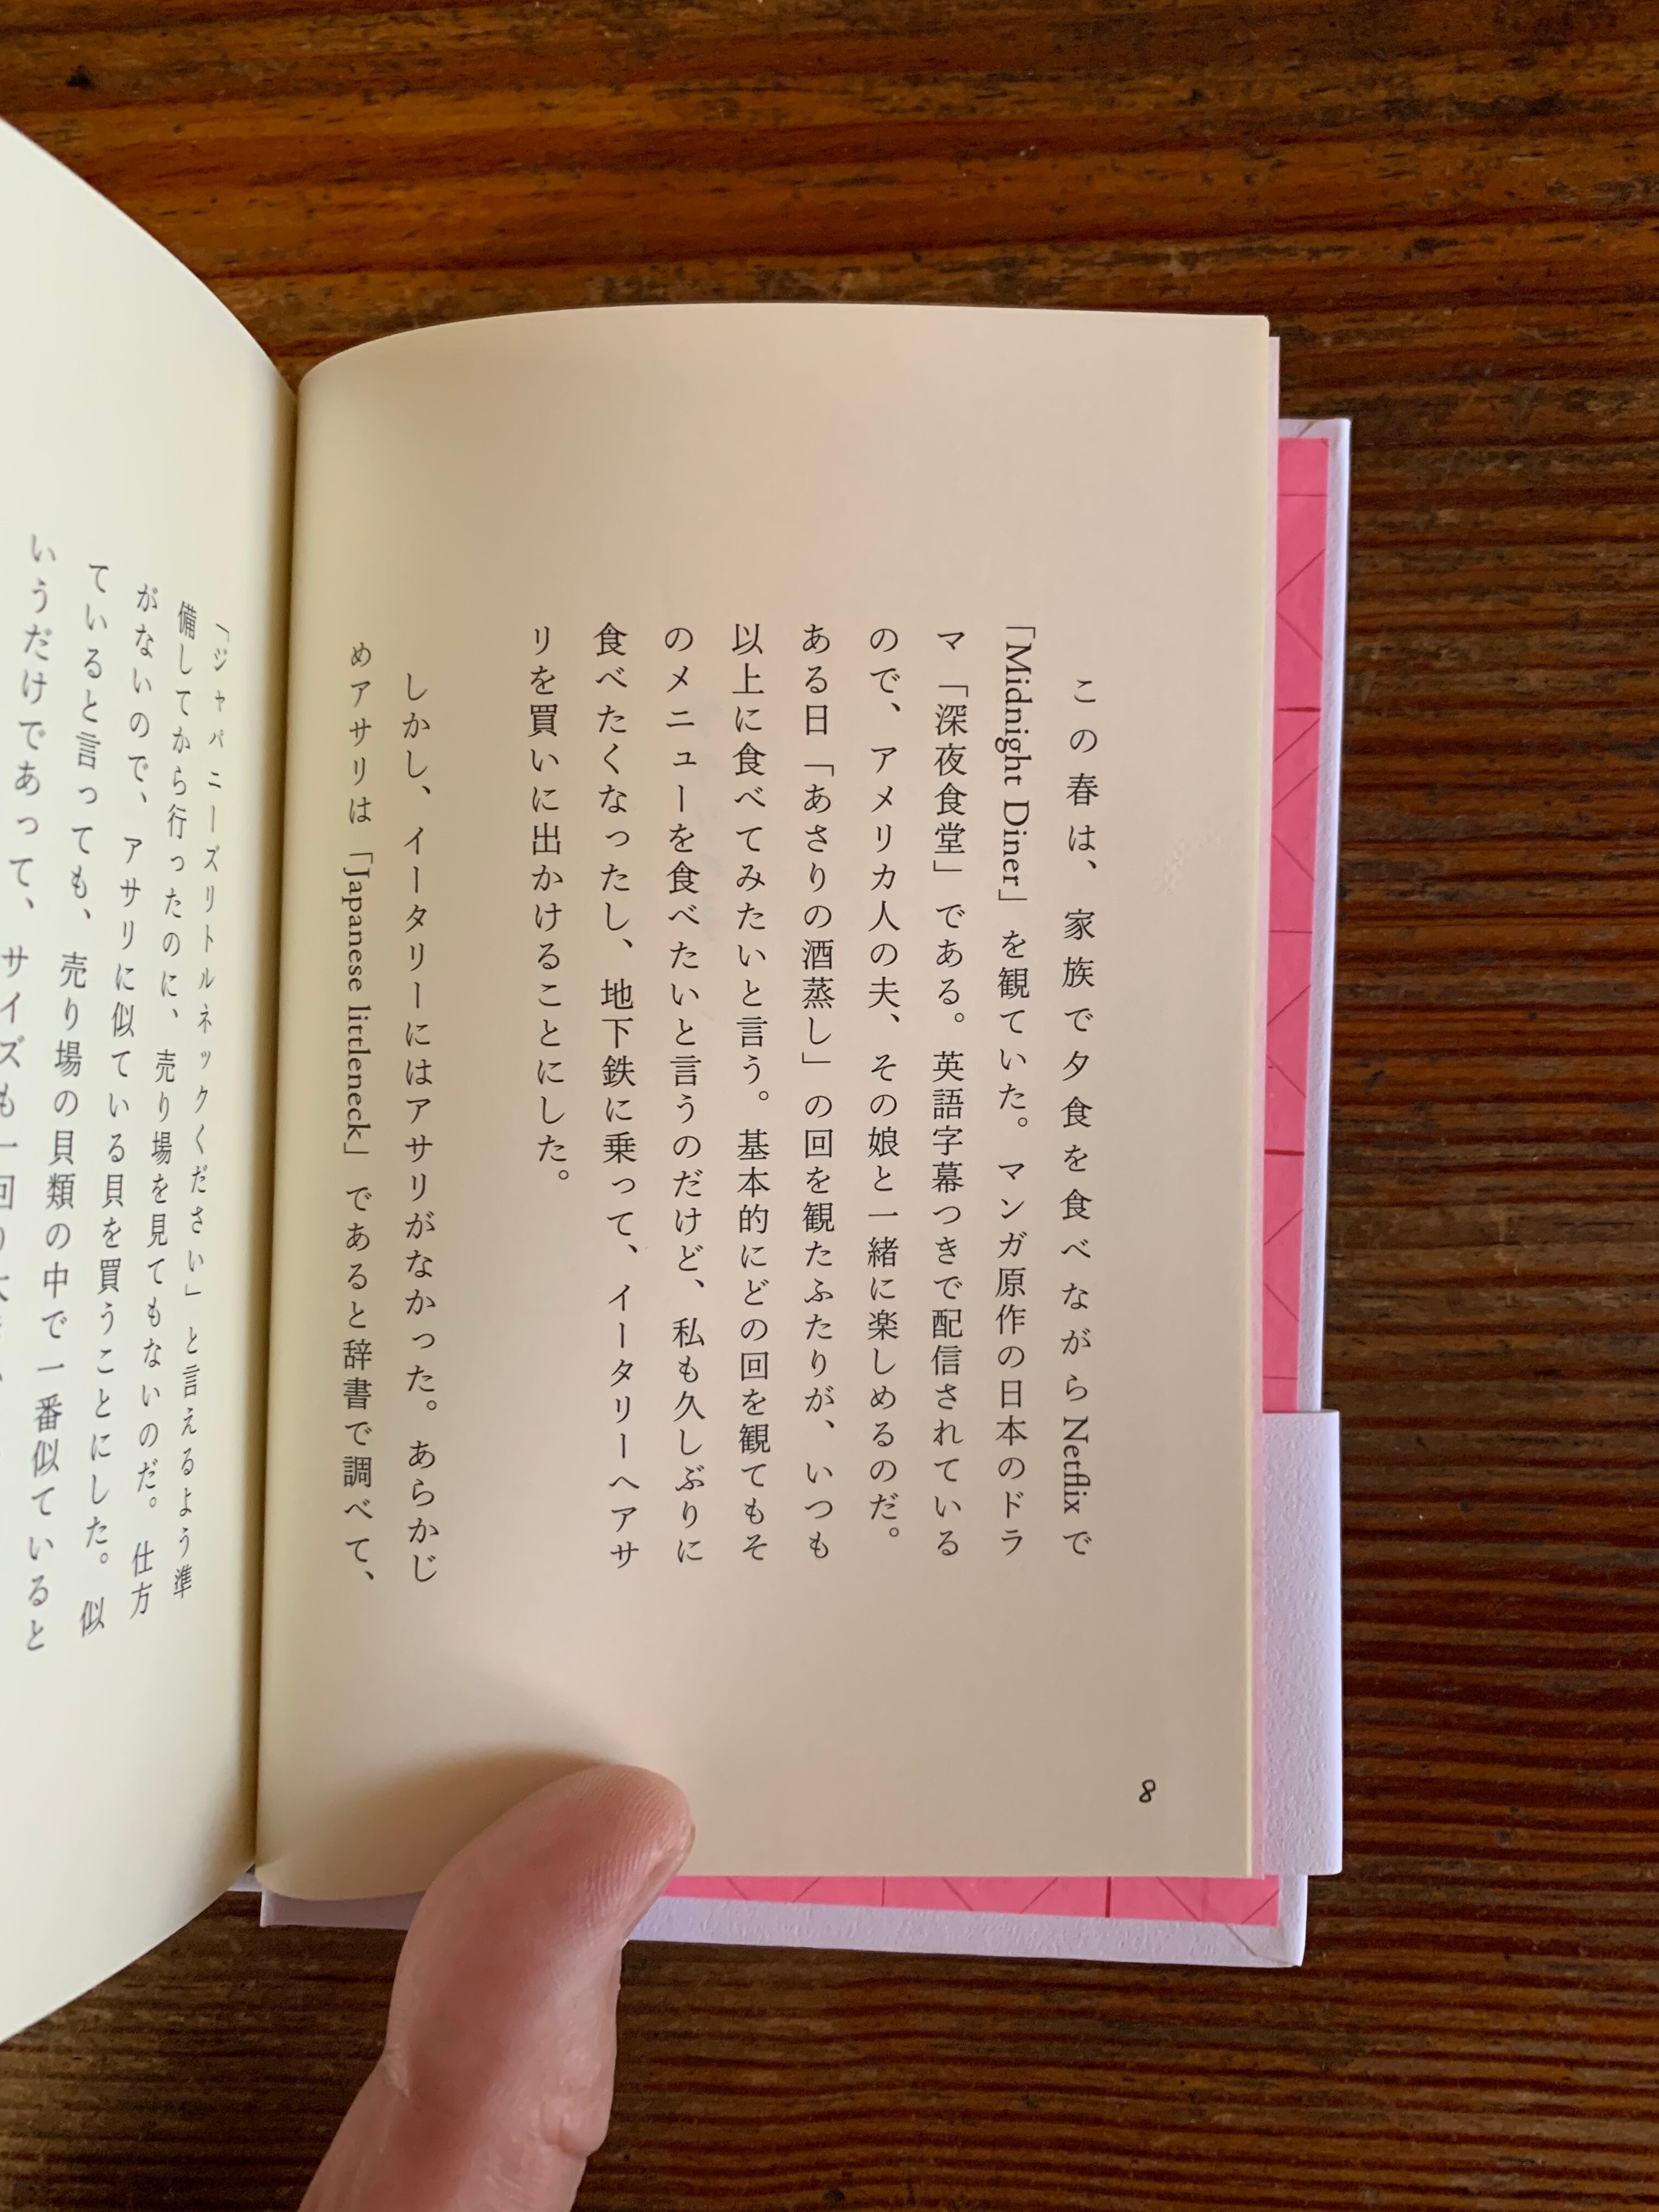 この春は、家族で夕食を食べながら Netflix で
「Midnight Diner」を観ていた。マンガ原作の日本のドラ
マ「深夜食堂」である。英語字幕つきで配信されている
ので、アメリカ人の夫、その娘と一緒に楽しめるのだ。
ある日「あさりの酒蒸し」の回を観たふたりが、いつも
以上に食べてみたいと言う。基本的にどの回を観てもそ
のメニューを食べたいと言うのだけど、私も久しぶりに
食べたくなったし、地下鉄に乗って、イータリーへアサ
リを買いに出かけることにした。
しかし、イータリーにはアサリがなかった。あらかじ
めアサリは「Japanese littleneck」であると辞書で調べて、
8
「ジャパニーズリトルネックください」と言えるよう準
備してから行ったのに、売り場を見てもないのだ。仕方
がないので、アサリに似ている貝を買うことにした。似
ていると言っても、売り場の貝類の中で一番似ていると
いうだけであって、サイズも一回り